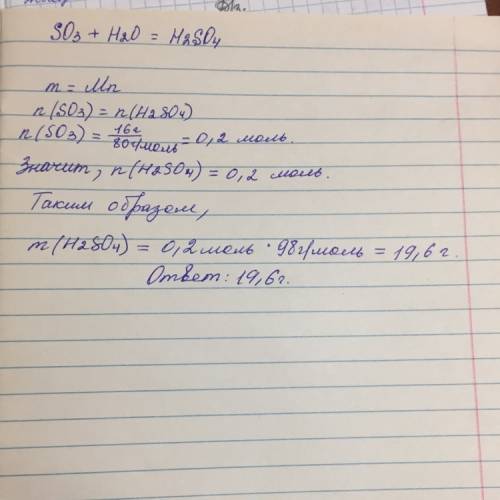 SO3 + H2O = H2SO4
m = Mn
n(SO3) = n(H2SO4)
n(SO3) = 16г/80г/моль = 0,2 моль.
Значит, n(H2SO4) = 0,2 моль.
Таким образом,
m(H2SO4) = 0,2 моль · 98г/моль = 19,6 г.
Ответ: 19,6г.